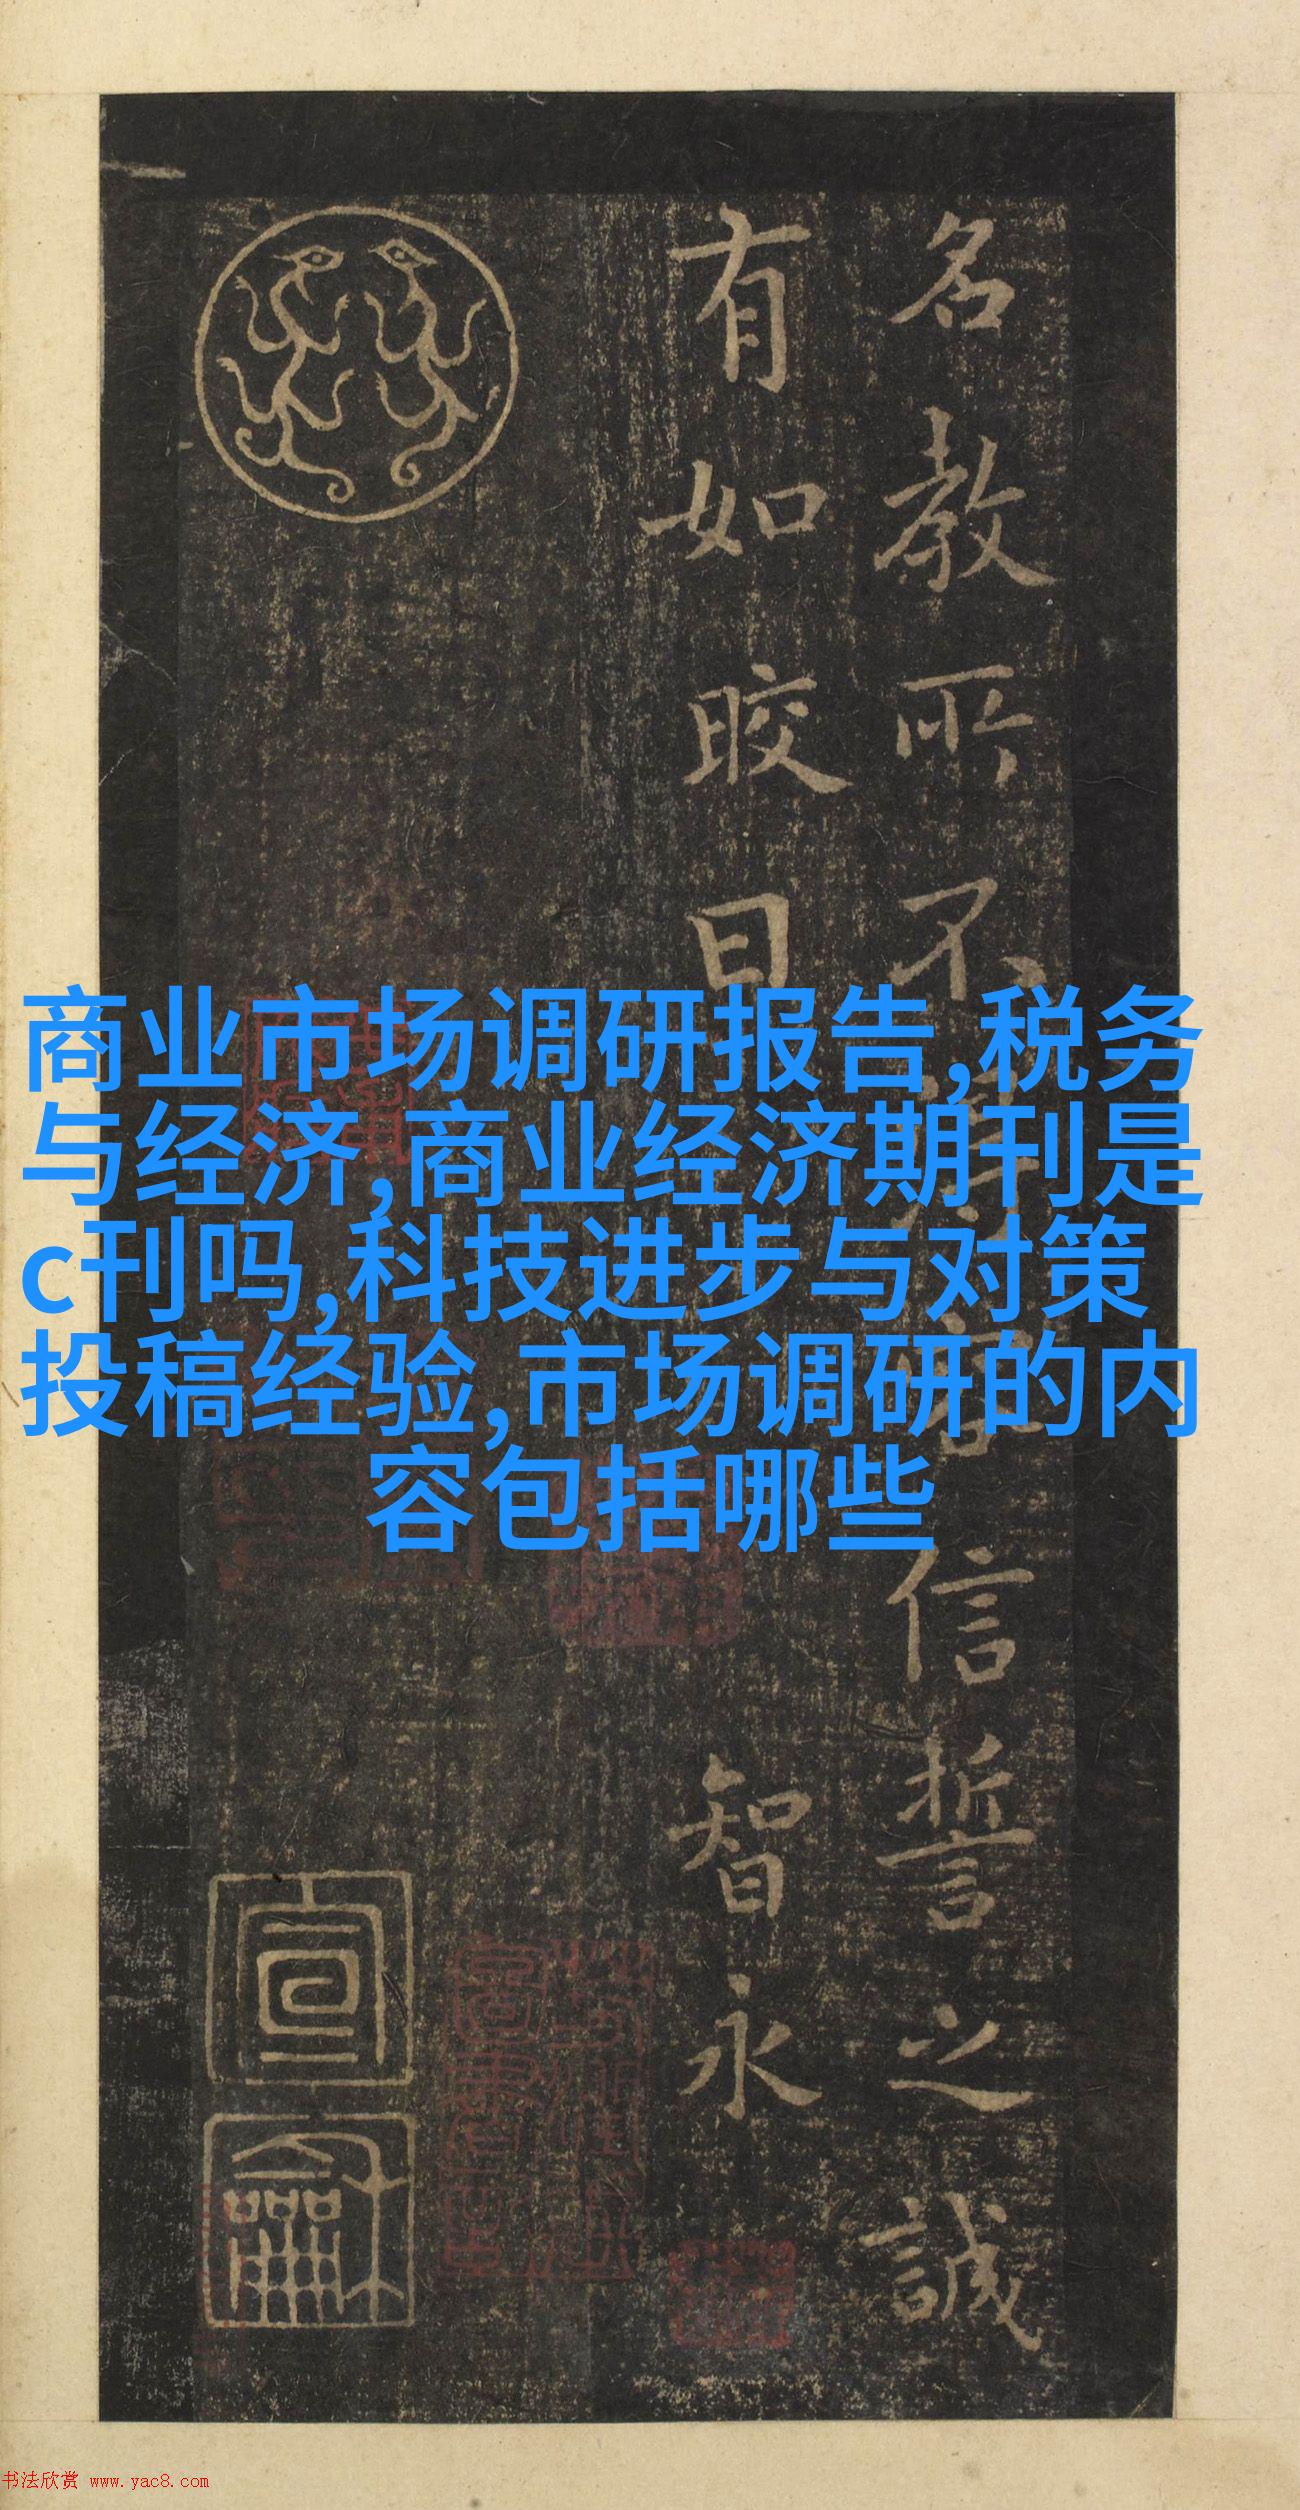 名教所不得容信誓之誠
有如晈日 智永
宣
龢
商业市场调研报告,税务
与经济,商业经济期刊是
c刊吗,科技进步与对策
投稿经验,市场调研的内
容包括哪些
书法欣赏 www.yac8.com